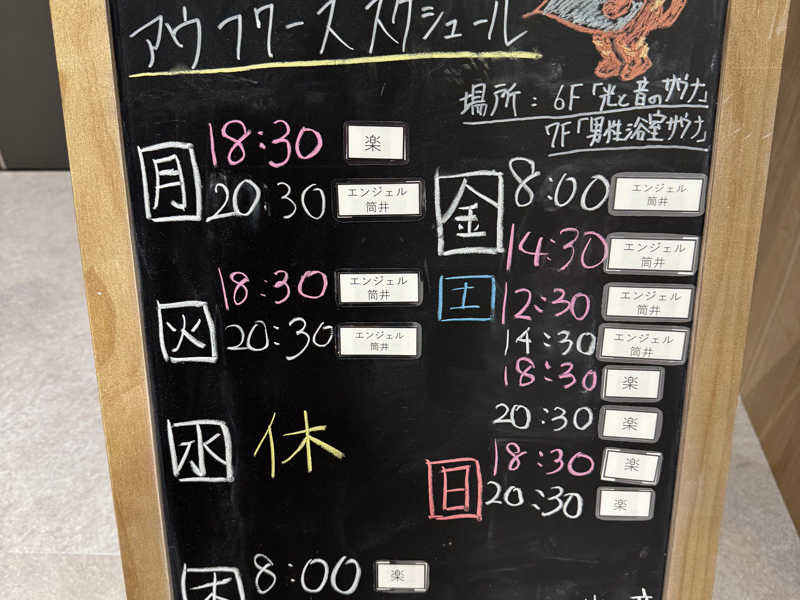 アウフグース スケジュール
場所：6F「光と音のサウナ」
7F「男性浴室サウナ」
月
18:30 楽
20:30 エンジェル筒井
火
18:30 エンジェル筒井
20:30 エンジェル筒井
水
休
木
8:00 楽
金
8:00 エンジェル筒井
14:30 エンジェル筒井
土
12:30 エンジェル筒井
14:30 エンジェル筒井
18:30 楽
20:30 楽
日
18:30 楽
20:30 楽